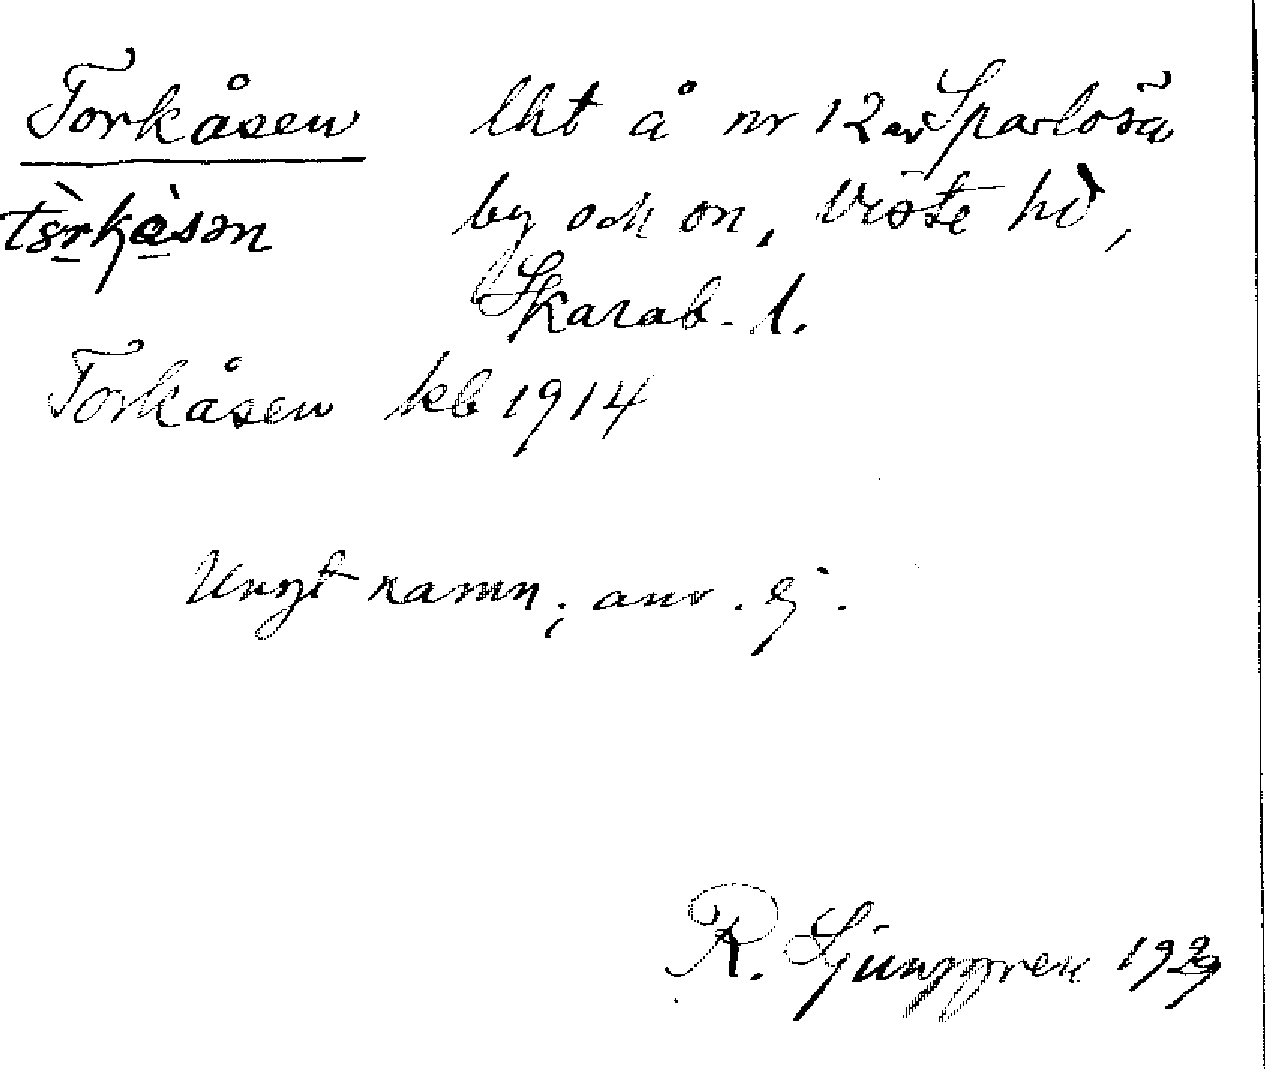 Torkåsen lht å nr 12 av Sparlösa
by och sn, Viste hd,
Skarab. l.
Torkåsen kb 1914
Ungt namn; anv. ej.
R. Ljunggren 1929